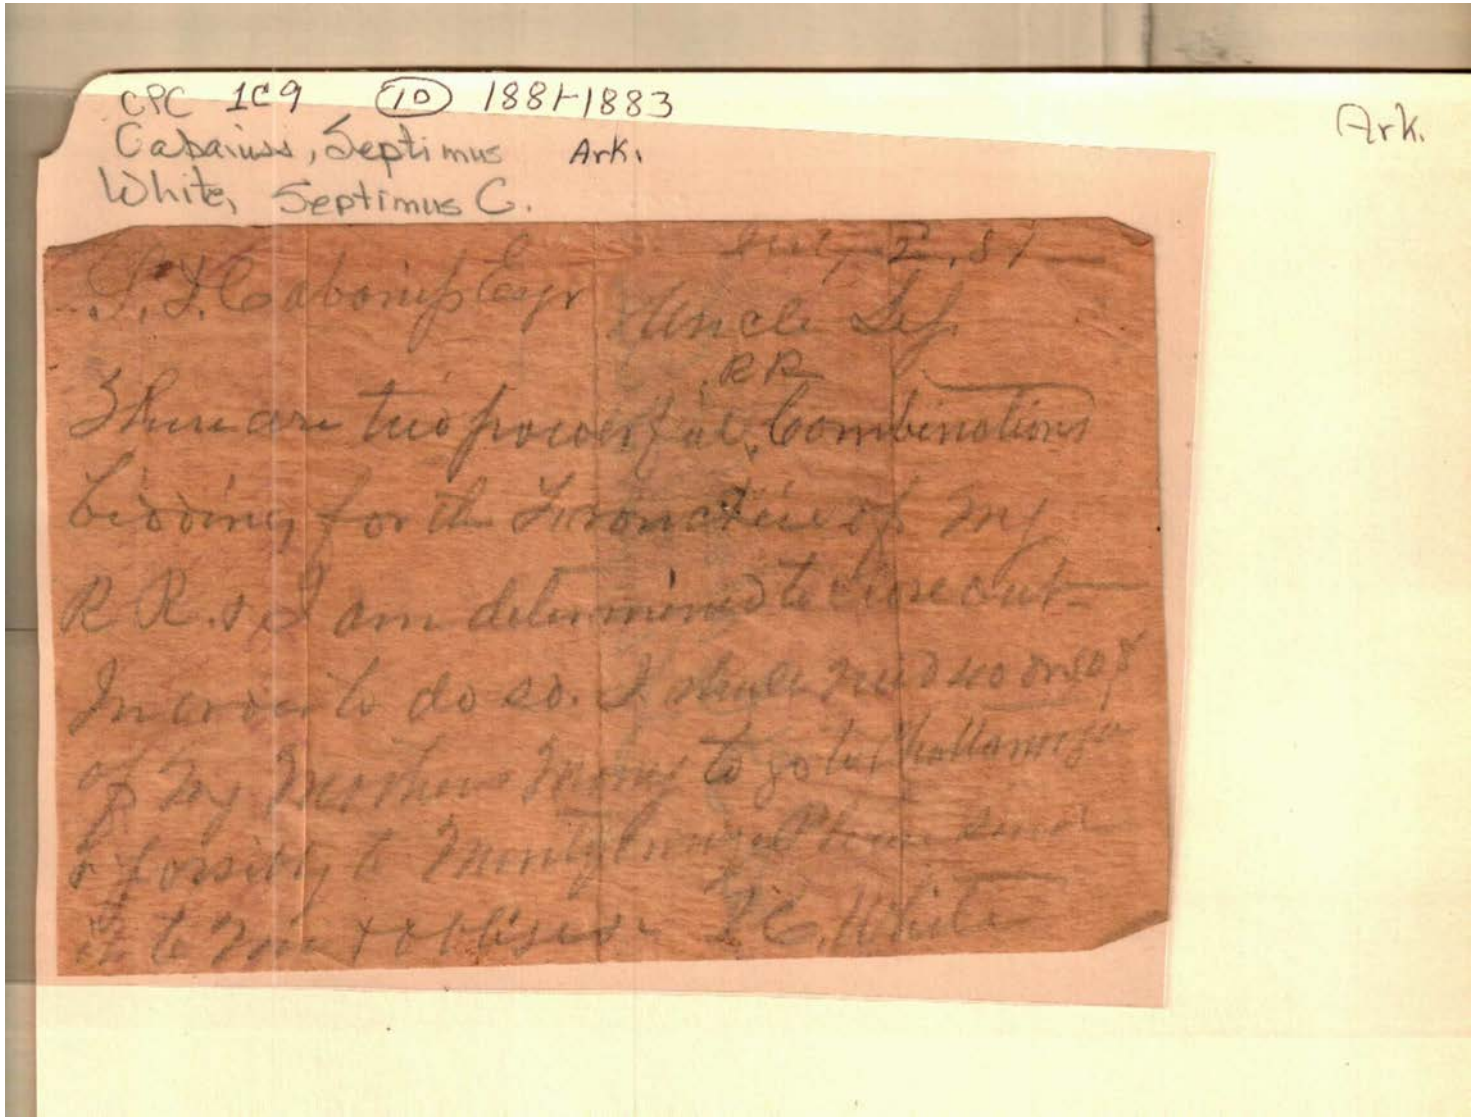 CPC 1C9 (10) 1881-1883
Ark.
Cabaniss, Septimus Ark.
White, Septimus C.
July 2, 81
S. D. Cabaniss Esqr
Uncle Sep.
RR
There are two powerful Combinations
bidding for the Franchise of My
R R. & I am determined to close out
In order to do so. I shall need 40 or 50$
of My Mothers Money to go to Chattanooga
& possibly to Montgomery Please send
it to me & oblige S. C. White